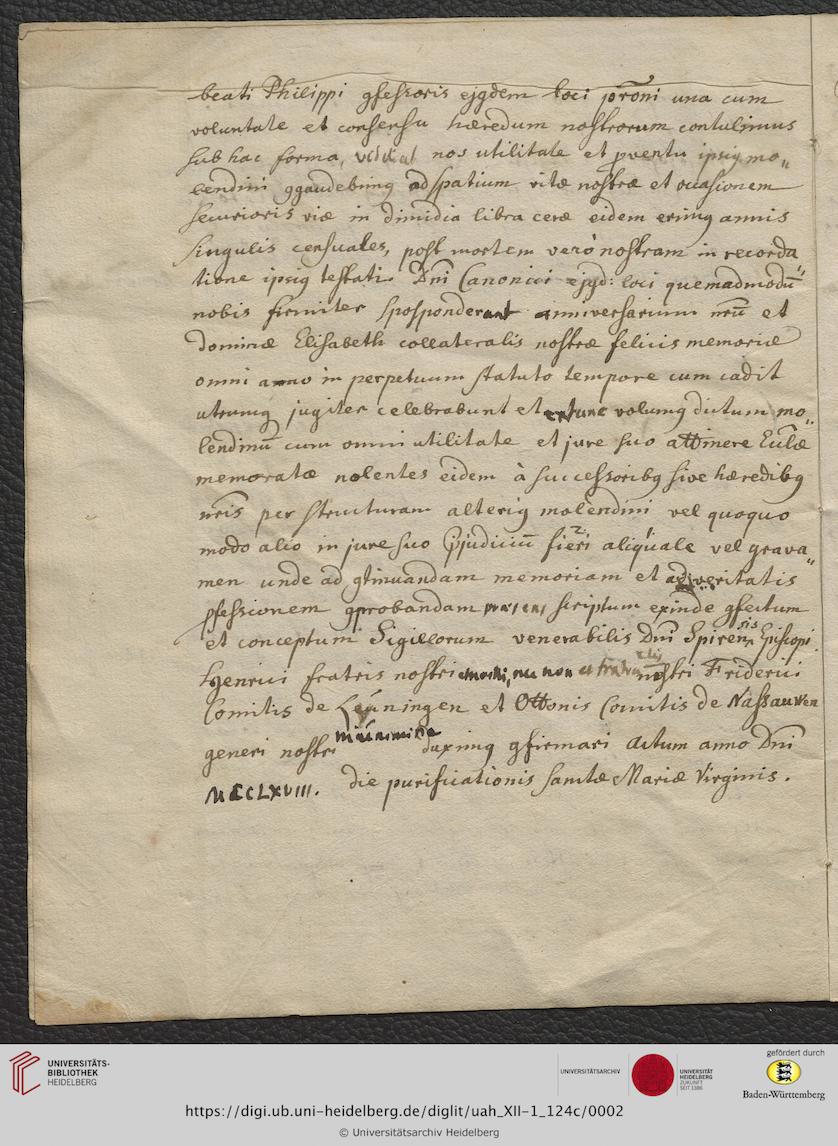 beati Philippi gfessoris ejgdem loci prõni una cum
voluntate et consensu hæredum nostrorum contulimus
sub hac forma, nos utilitate et pventu ipsig mo„
lendini ggaudebimg ad spatium vitæ nostræ et ocasionem
securioris viæ in dimidia libra ceræ eidem erimg annis
singulis censuales, post mortem verò nostram in recorda„
tione ipsig testati Dnĩ Canonici ejgd: loci quemadmodũ
nobis firmiter sposponderunt anniversarium nrũ et
dominæ Elisabeth collateralis nostræ felicis memoriæ
omni anno in perpetuum statuto tempore cum cadit
utrumg jugiter celebrabunt et extunc volumg dictum mo„
lendinũ cum omni utilitate et jure suo attinere Eccl̃æ
memoratæ nolentes eidem à successoribg sive hæredibg
nr̃is per structuram alterig molendini vel quoquo
modo alio in jure suo pjudiciũ fieri aliquale vel grava„
men unde ad gtinuandam memoriam et ad veritatis
pfessionem gprobandam præsens scriptum exinde gfectum
et conceptum Sigillorum venerabilis Dnĩ Spirensis Episcopi
Henrici fratris nostri nec non nostri Friderici
Comitis de Leiningen et Ottonis Comitis de Nassauwen
generi nostri duximg gfirmari Actum anno Dnĩ
MCCLXVIII. die purificationis sanctæ Mariæ Virginis.
UNIVERSITÄTS-
BIBLIOTHEK
HEIDELBERG
UNIVERSITÄTSARCHIV
UNIVERSITÄT
HEIDELBERG
ZUKUNFT
SEIT 1386
gefördert durch
Baden-Württemberg
https://digi.ub.uni-heidelberg.de/diglit/uah_XII-1_124c/0002
© Universitätsarchiv Heidelberg